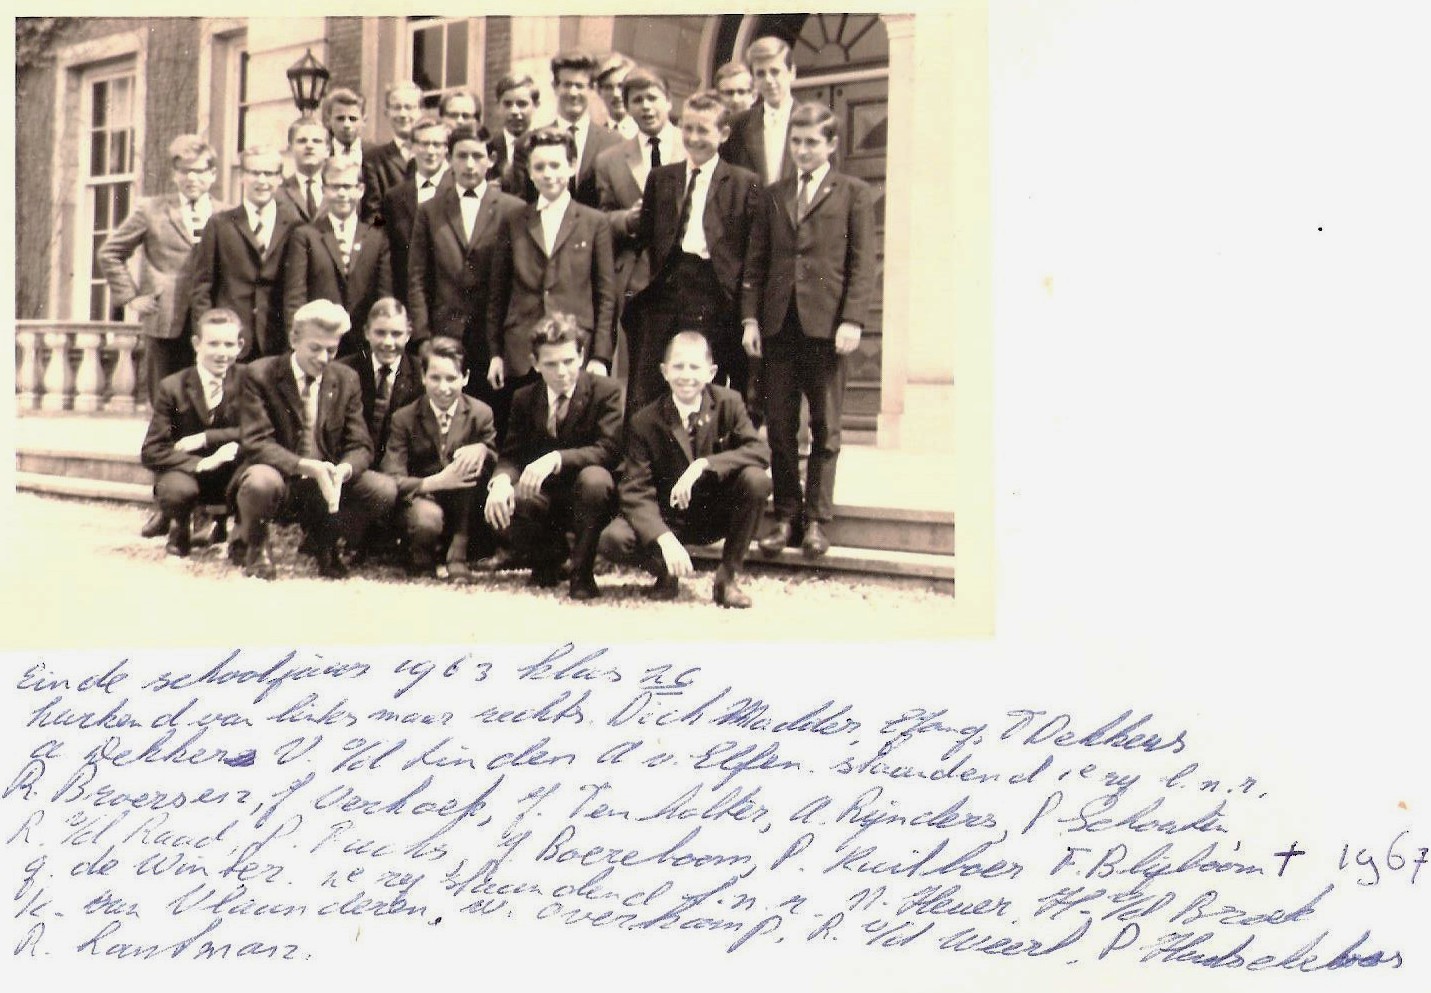 Einde schooljaar 1963 klas 2c
hurkend van links naar rechts. Dick Madder, T Dekkers
a Dekkers V. v/d Linden A v. Elfen. staandend 1e ry l.n.r.
R. Broersen, J Verhoek, J. Tenholter, A. Rijnders, P Schouten
R. v/d Raad, P. Fuchs, J Boereboom, P. Kuilboer F. Blijboom † 1967
g. de Winter. 2e ry staandend l.n.r. N. Heuer. H. v/d Broek
K. van Vlaanderen, W. Overkamp, R. v/d Weert. P
R.